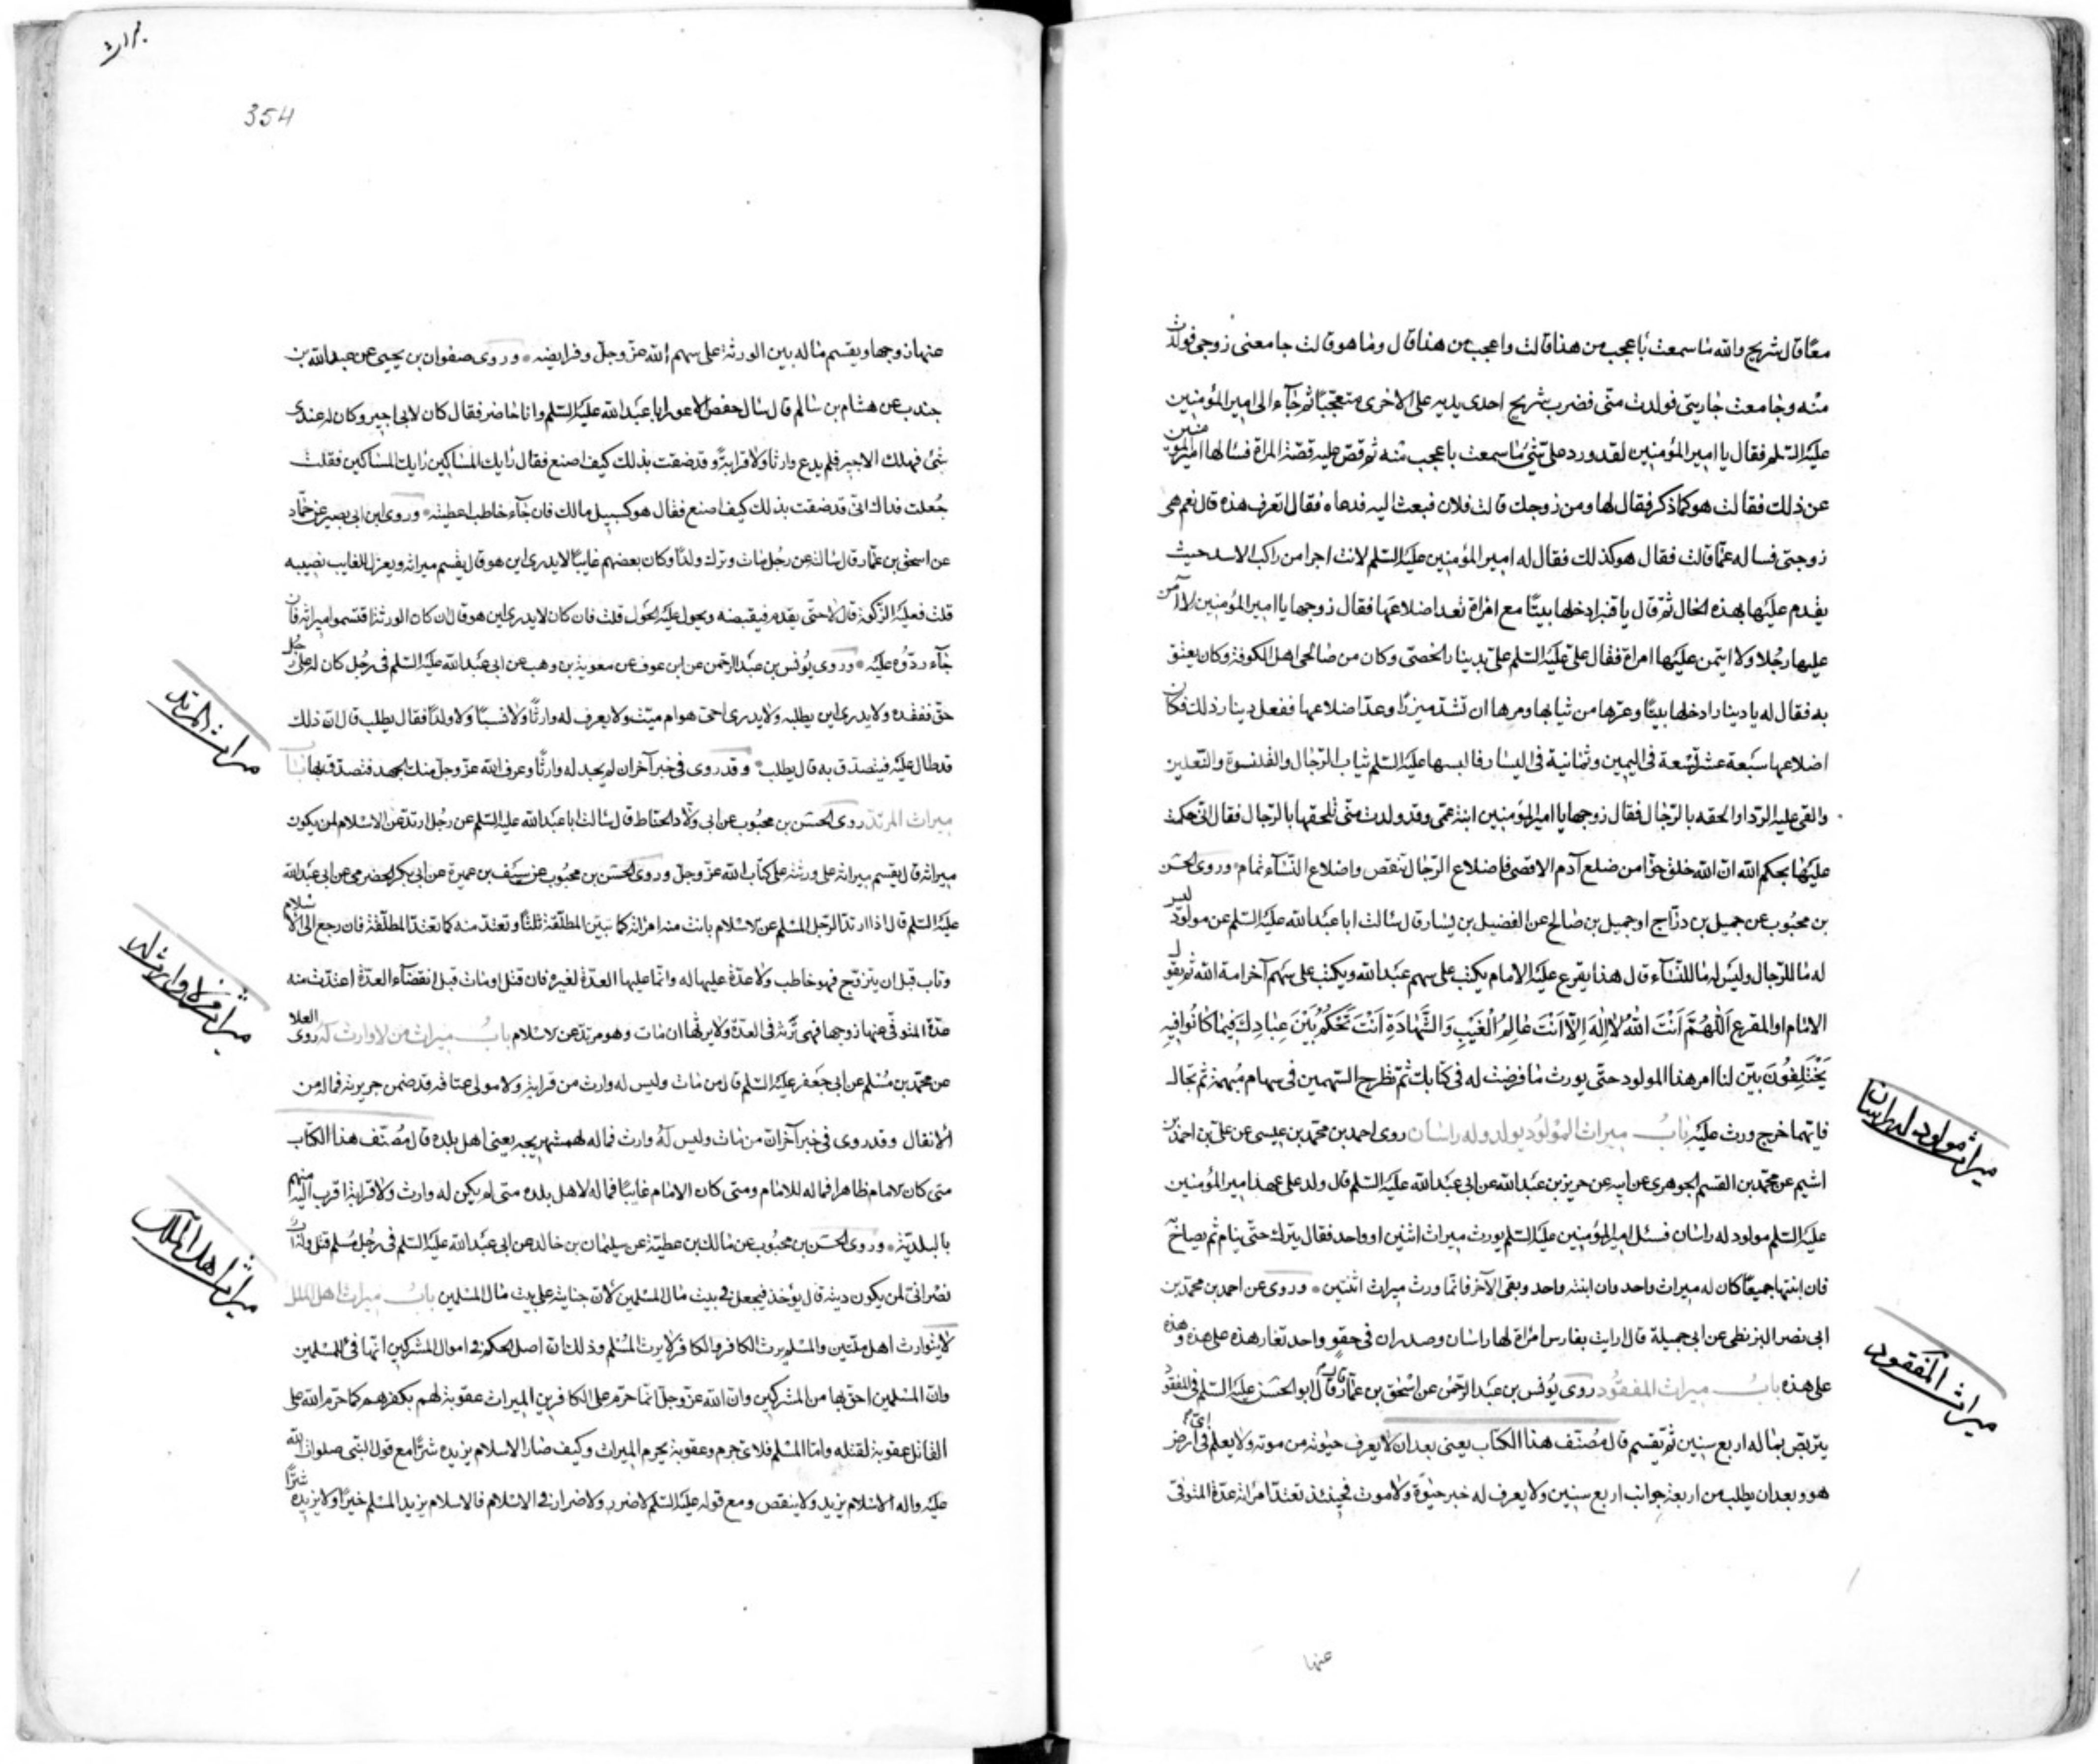 معًا قال شريح والله ما سمعت باعجب من هذا قالت واعجب من هذا قال وما هو قالت جامعنى زوجى فولدت
منه وجامعت جاريتى فولدت منّى فضرب شريح احدى يديه على الاخرى متعجّبًا ثم جآء الى امير المؤمنين
عليه السّلم فقال يا امير المؤمنين لقد ورد علىّ شئ ما سمعت باعجب منه ثم قصّ عليه قصّة المراة فسالها امير المؤمنين
عن ذلك فقالت هو كما ذكر فقال لها ومن زوجك قالت فلان فبعث اليه فدعاه فقال اتعرف هذه قال نعم هى
زوجتى فساله عمّا قالت فقال هو كذلك فقال له امير المؤمنين عليه السّلم لانت اجرا من راكب الاسد حيث
يقدم عليها بهذه الحال ثمّ قال يا قنبر ادخلها بيتًا مع امراة تعد اضلاعها فقال زوجها يا امير المؤمنين لا آمن
عليها رجلا ولا ايتمن عليها امراة فقال علىّ عليه السّلم علىّ بدينار الخصىّ وكان من صالحى اهل الكوفة وكان يعثق
به فقال له يا دينار ادخلها بيتًا وعرّها من ثيابها ومرها ان تشدّ ميزرًا وعدّ اضلاعها ففعل دينار ذلك فكان
اضلاعها سبعة عشر تسعة فى اليمين وثمانية فى اليسار فالبسها عليه السّلم ثياب الرّجال والقلنسوة والنّعلين
والقى عليه الرّدا والحقه بالرّجال فقال زوجها يا امير المؤمنين ابنة عمّى وقد ولدت منّى تلحقها بالرّجال فقال انّى حكمت
عليها بحكم الله ان الله خلق حوّا من ضلع آدم الاقصى فاضلاع الرّجال تنقص واضلاع النّسآء تمام وروى الحسن
بن محبوب عن جميل بن درّاج او جميل بن صالح عن الفضيل بن يسار قال سالت ابا عبد الله عليه السّلم عن مولود ليس
له ما للرّجال وليس له ما للنّسآء قال هذا يقرع عليه الامام يكتب على سهم عبد الله ويكتب على سهم آخر امة الله ثم يقول
الامام او المقرع اَللّٰهُمَّ اَنْتَ اللهُ لَا اِلٰهَ اِلَّا اَنْتَ عَالِمُ الْغَيْبِ وَالشَّهَادَةِ اَنْتَ تَحْكُمُ بَيْنَ عِبَادِكَ فِيمَا كَانُوا فِيهِ
يَخْتَلِفُونَ بيّن لنا امر هذا المولود حتّى يورث ما فرضت له فى كتابك ثمّ تطرح السّهمين فى سهام مبهمة ثم تجال
فايّهما خرج ورث عليه باب ميراث المولود يولد وله راسان روى احمد بن محمّد بن عيسى عن علىّ بن احمد بن
اشيم عن محمّد بن القسم الجوهرى عن ابيه عن حريز بن عبد الله عن ابى عبد الله عليه السّلم قال ولد على عهد امير المؤمنين
عليه السّلم مولود له راسان فسئل امير المؤمنين عليه السّلم يورث ميراث اثنين او واحد فقال يترك حتّى ينام ثم يصاح به
فان انتبها جميعًا كان له ميراث واحد وان انتبه واحد وبقى الآخر فانّما ورث ميراث اثنين وروى عن احمد بن محمّد بن
ابى نصر البزنطى عن ابى جميلة قال رايت بفارس امراة لها راسان وصدران فى حقو واحد تغار هذه على هذه وهذه
على هذه باب ميراث المفقود روى يونس بن عبد الرّحمن عن اسحق بن عمّار قال قال ابو الحسن عليه السّلم فى المفقود
يتربّص بماله اربع سنين ثم يقسم قال مصنّف هذا الكتاب يعنى بعد ان لا يعرف حيوته من موته ولا يعلم فى اىّ ارض
هو وبعد ان يطلب من اربعة جوانب اربع سنين ولا يعرف له خبر حيوة ولا موت فحينئذ تعتدّ امراته عدّة المتوفى
ميراث مولود له راسان
ميراث المفقود
عنها
ميراث
354
عنها زوجها ويقسم ماله بين الورثة على سهم الله عزّ وجلّ وفرايضه وروى صفوان بن يحيى عن عبد الله بن
جندب عن هشام بن سالم قال سال حفص الاعور ابا عبد الله عليه السّلم وانا حاضر فقال كان لابى اجير وكان له عندى
شئ فهلك الاجير فلم يدع وارثا ولا قرابة وقد ضقت بذلك كيف اصنع فقال رايك المساكين رايك المساكين فقلت
جعلت فداك انّى قد ضقت بذلك كيف اصنع فقال هو كسبيل مالك فان جآء طالب اعطيته وروى ابن ابى بصير عن حمّاد
عن اسحق بن عمّار قال سالته عن رجل مات وترك ولدًا وكان بعضهم غايبًا لا يدرى اين هو قال يقسم ميراثه ويعزل للغايب نصيبه
قلت فعليه الزّكوة قال لا حتّى يقدم فيقبضه ويحول عليه الحول قلت فان كان لا يدرى اين هو قال ان كان الورثة اقتسموا ميراثه فان
جآء ردّوه عليه وروى يونس بن عبد الرّحمن عن ابن عوف عن معوية بن وهب عن ابى عبد الله عليه السّلم فى رجل كان له على رجل
حقّ ففقده ولا يدرى اين يطلبه ولا يدرى احىّ هو ام ميّت ولا يعرف له وارثًا ولا نسبًا ولا ولدًا فقال يطلب قال ان ذلك
قد طال عليه فيتصدّق به قال يطلب وقد روى فى خبر آخر ان لم يجد له وارثًا وعرف الله عزّ وجلّ منك الجهد فتصدّق بها باب
ميراث المرتدّ روى الحسن بن محبوب عن ابى ولّاد الحنّاط قال سالت ابا عبد الله عليه السّلم عن رجل ارتدّ عن الاسلام لمن يكون
ميراثه قال يقسم ميراثه على ورثته على كتاب الله عزّ وجلّ وروى الحسن بن محبوب عن سيف بن عميرة عن ابى بكر الحضرمى عن ابى عبد الله
عليه السّلم قال اذا ارتدّ الرّجل المسلم عن الاسلام بانت منه امراته كما تبين المطلّقة ثلثًا وتعتدّ منه كما تعتدّ المطلّقة فان رجع الى الاسلام
وتاب قبل ان يتزوّج فهو خاطب ولا عدّة عليها له وانّما عليها العدّة لغيره فان قتل او مات قبل انقضآء العدّة اعتدّت منه
عدّة المتوفى عنها زوجها فهى ترثه فى العدّة ولا يرثها ان مات وهو مرتدّ عن الاسلام باب ميراث من لا وارث له روى العلا
عن محمّد بن مسلم عن ابى جعفر عليه السّلم قال من مات وليس له وارث من قرابة ولا مولى عتاقه قد ضمن جريرته فماله من
الانفال وقد روى فى خبر آخر ان من مات وليس له وارث فماله لهمشهريجه يعنى اهل بلده قال مصنّف هذا الكتاب
متى كان الامام ظاهرا فماله للامام ومتى كان الامام غايبًا فماله لاهل بلده متى لم يكن له وارث ولا قرابة اقرب اليه منهم
بالبلديّة وروى الحسن بن محبوب عن مالك بن عطيّة عن سليمان بن خالد عن ابى عبد الله عليه السّلم فى رجل مسلم قتل وله اب
نصرانىّ لمن يكون ديته قال يؤخذ فيجعل فى بيت مال المسلمين لانّ جنايته على بيت مال المسلمين باب ميراث اهل الملل
لا يتوارث اهل ملّتين والمسلم يرث الكافر والكافر لا يرث المسلم وذلك ان اصل الحكم فى اموال المشركين انّها فئ للمسلمين
وانّ المسلمين احقّ بها من المشركين وان الله عزّ وجلّ انّما حرّم على الكافرين الميراث عقوبة لهم بكفرهم كما حرّم الله على
القاتل عقوبة لقتله وامّا المسلم فلاىّ جرم وعقوبة يحرم الميراث وكيف صار الاسلام يزيده شرًّا مع قول النّبى صلوات الله
عليه واله الاسلام يزيد ولا ينقص ومع قوله عليه السّلم لا ضرر ولا ضرار فى الاسلام فالاسلام يزيد المسلم خيرًا ولا يزيده شرًّا
ميراث المرتد
ميراث من لا وارث له
ميراث اهل الملل